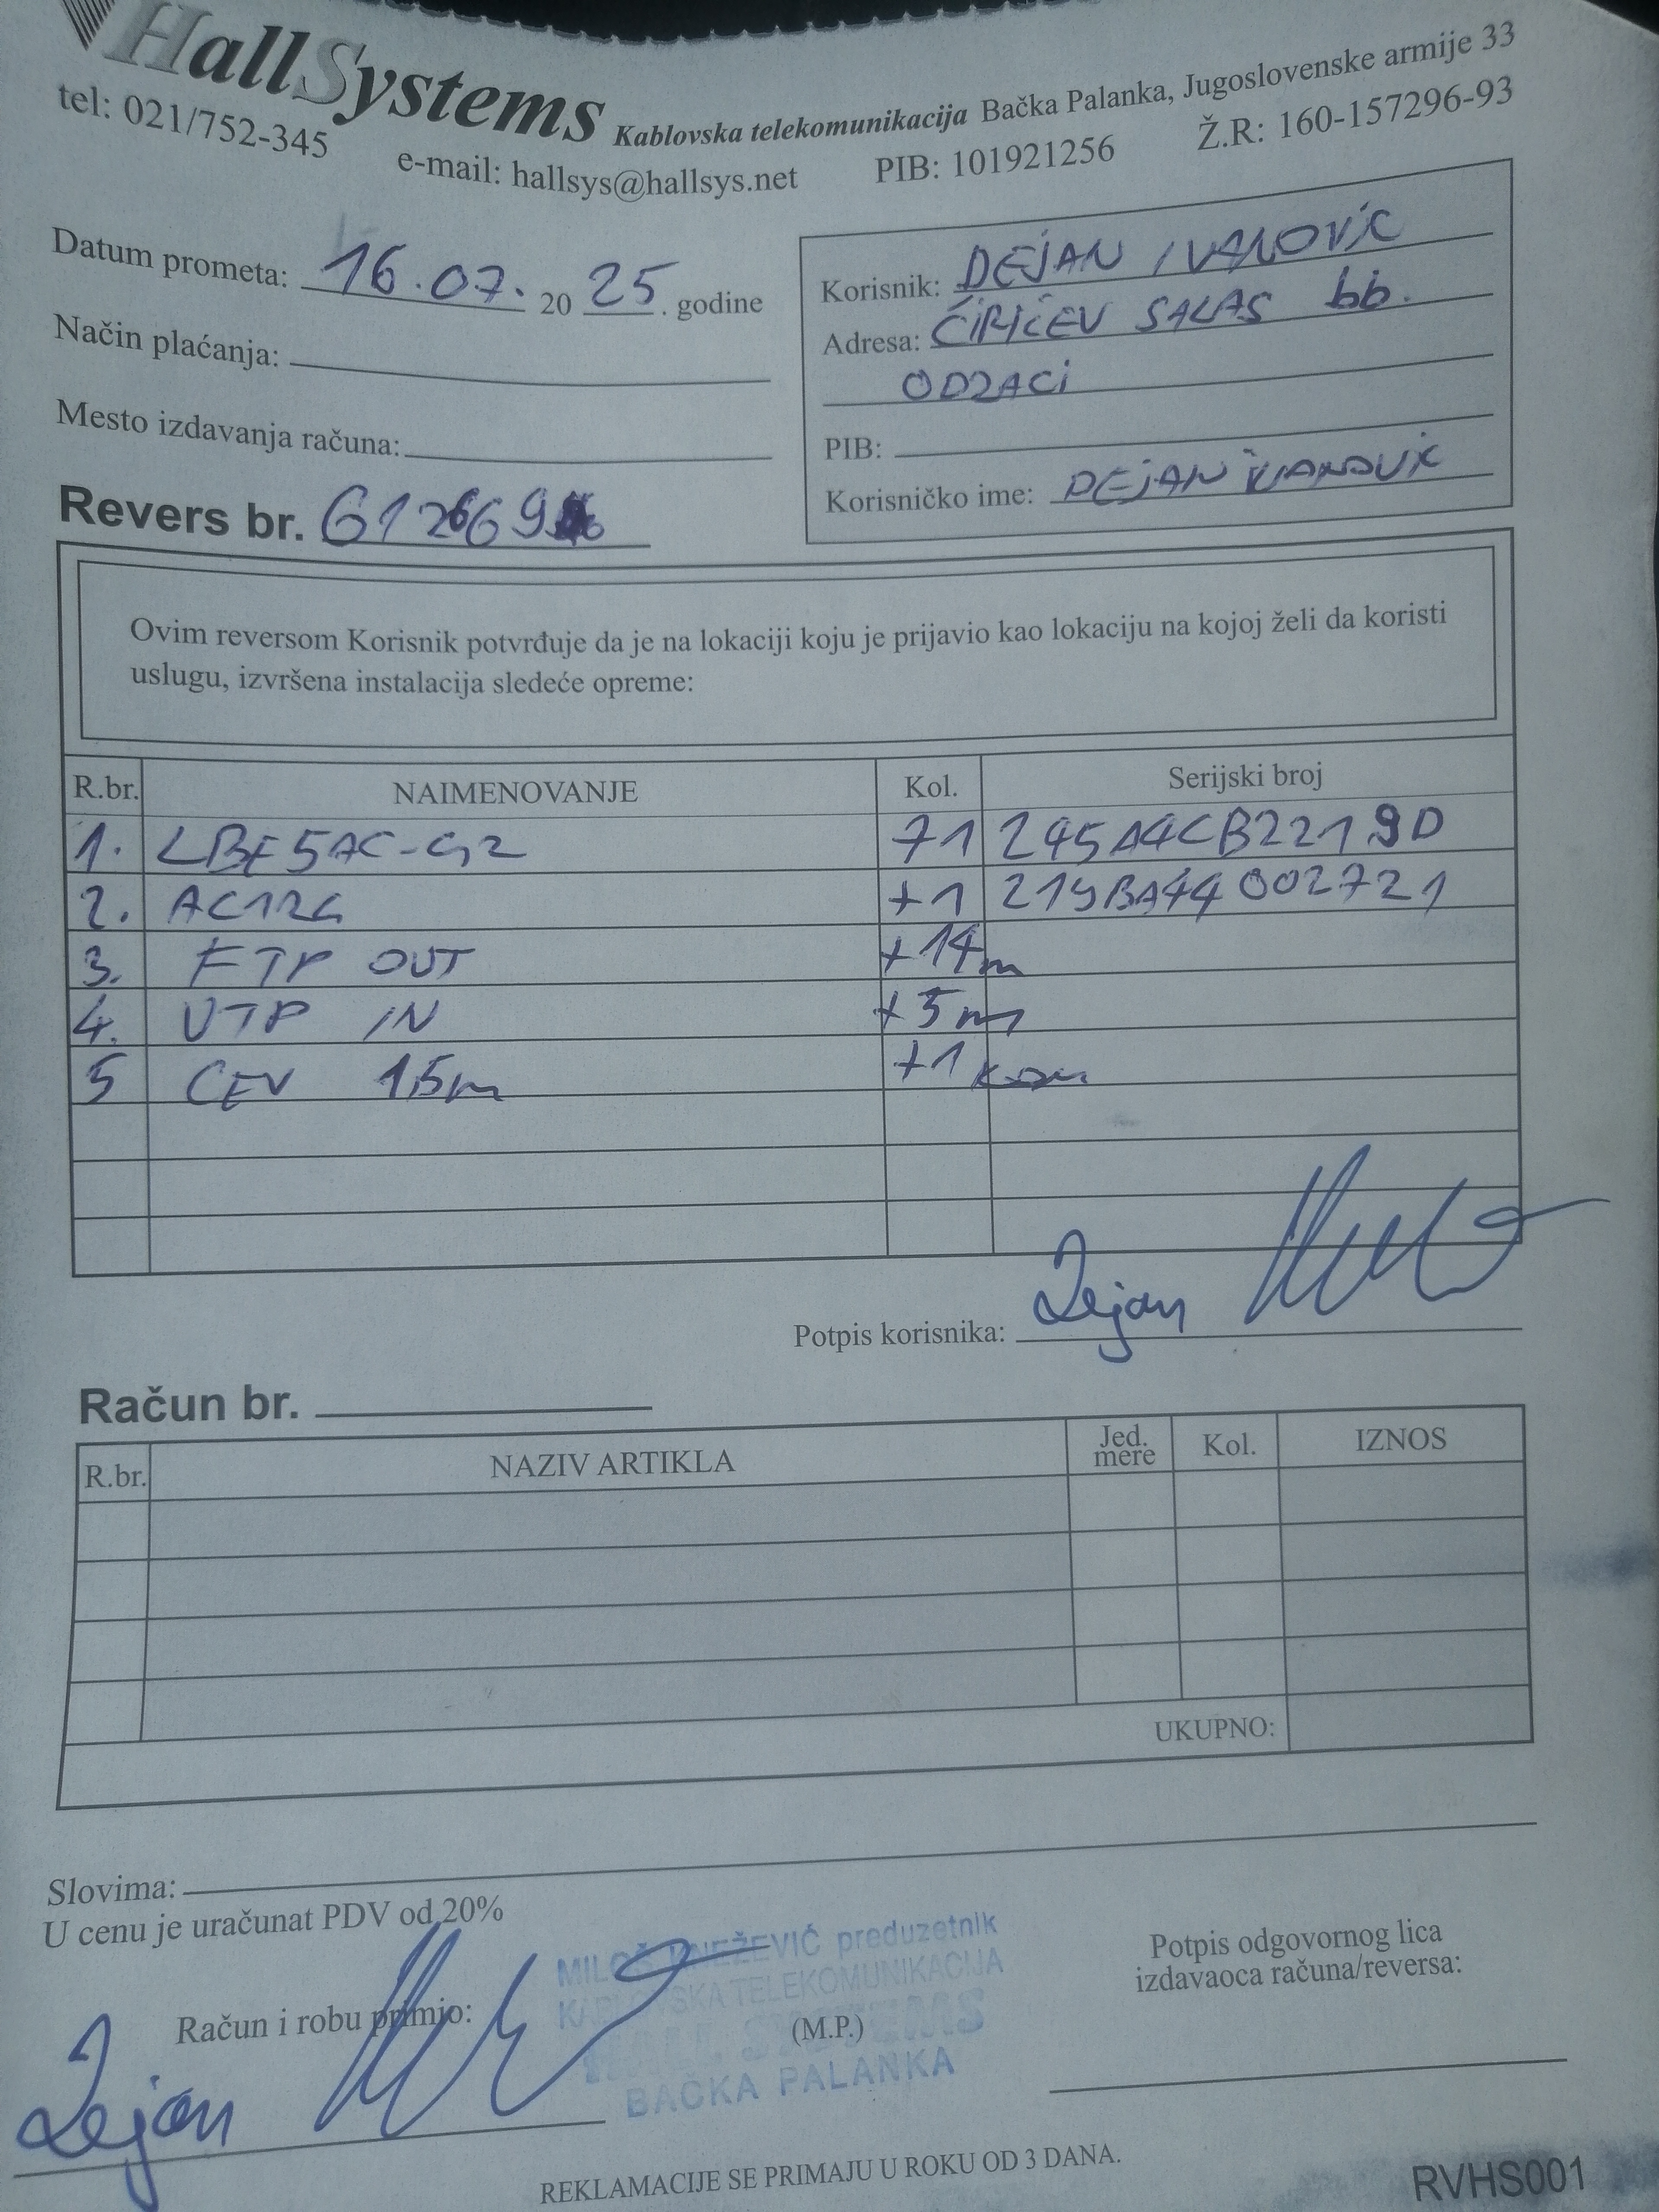 HallSystems Kablovska telekomunikacija Bačka Palanka, Jugoslovenske armije 33
tel: 021/752-345 e-mail: hallsys@hallsys.net PIB: 101921256 Ž.R: 160-157296-93
Datum prometa: 16.07. 20 25. godine
Način plaćanja:
Mesto izdavanja računa:
Korisnik: DEJAN IVANOVIĆ
Adresa: ĆIRIĆEV SALAS bb.
ODZACI
PIB:
Korisničko ime: DEJAN IVANOVIĆ
Revers br.
Ovim reversom Korisnik potvrđuje da je na lokaciji koju je prijavio kao lokaciju na kojoj želi da koristi
uslugu, izvršena instalacija sledeće opreme:
R.br. NAIMENOVANJE Kol. Serijski broj
1. LBE5AC-G2 +1 245A4CB2219D
2. AC12G +1 219BA44002721
3. FTP OUT +14m
4. UTP IN +5m
5 CEV 1,5m +1 kom
Potpis korisnika: Dejan
Račun br.
R.br. NAZIV ARTIKLA Jed. mere Kol. IZNOS
UKUPNO:
Slovima:
U cenu je uračunat PDV od 20%
Račun i robu primio:
Dejan
MILOŠ KNEŽEVIĆ preduzetnik
KABLOVSKA TELEKOMUNIKACIJA
HALL SYSTEMS
BAČKA PALANKA
(M.P.)
Potpis odgovornog lica
izdavaoca računa/reversa:
REKLAMACIJE SE PRIMAJU U ROKU OD 3 DANA.
RVHS001